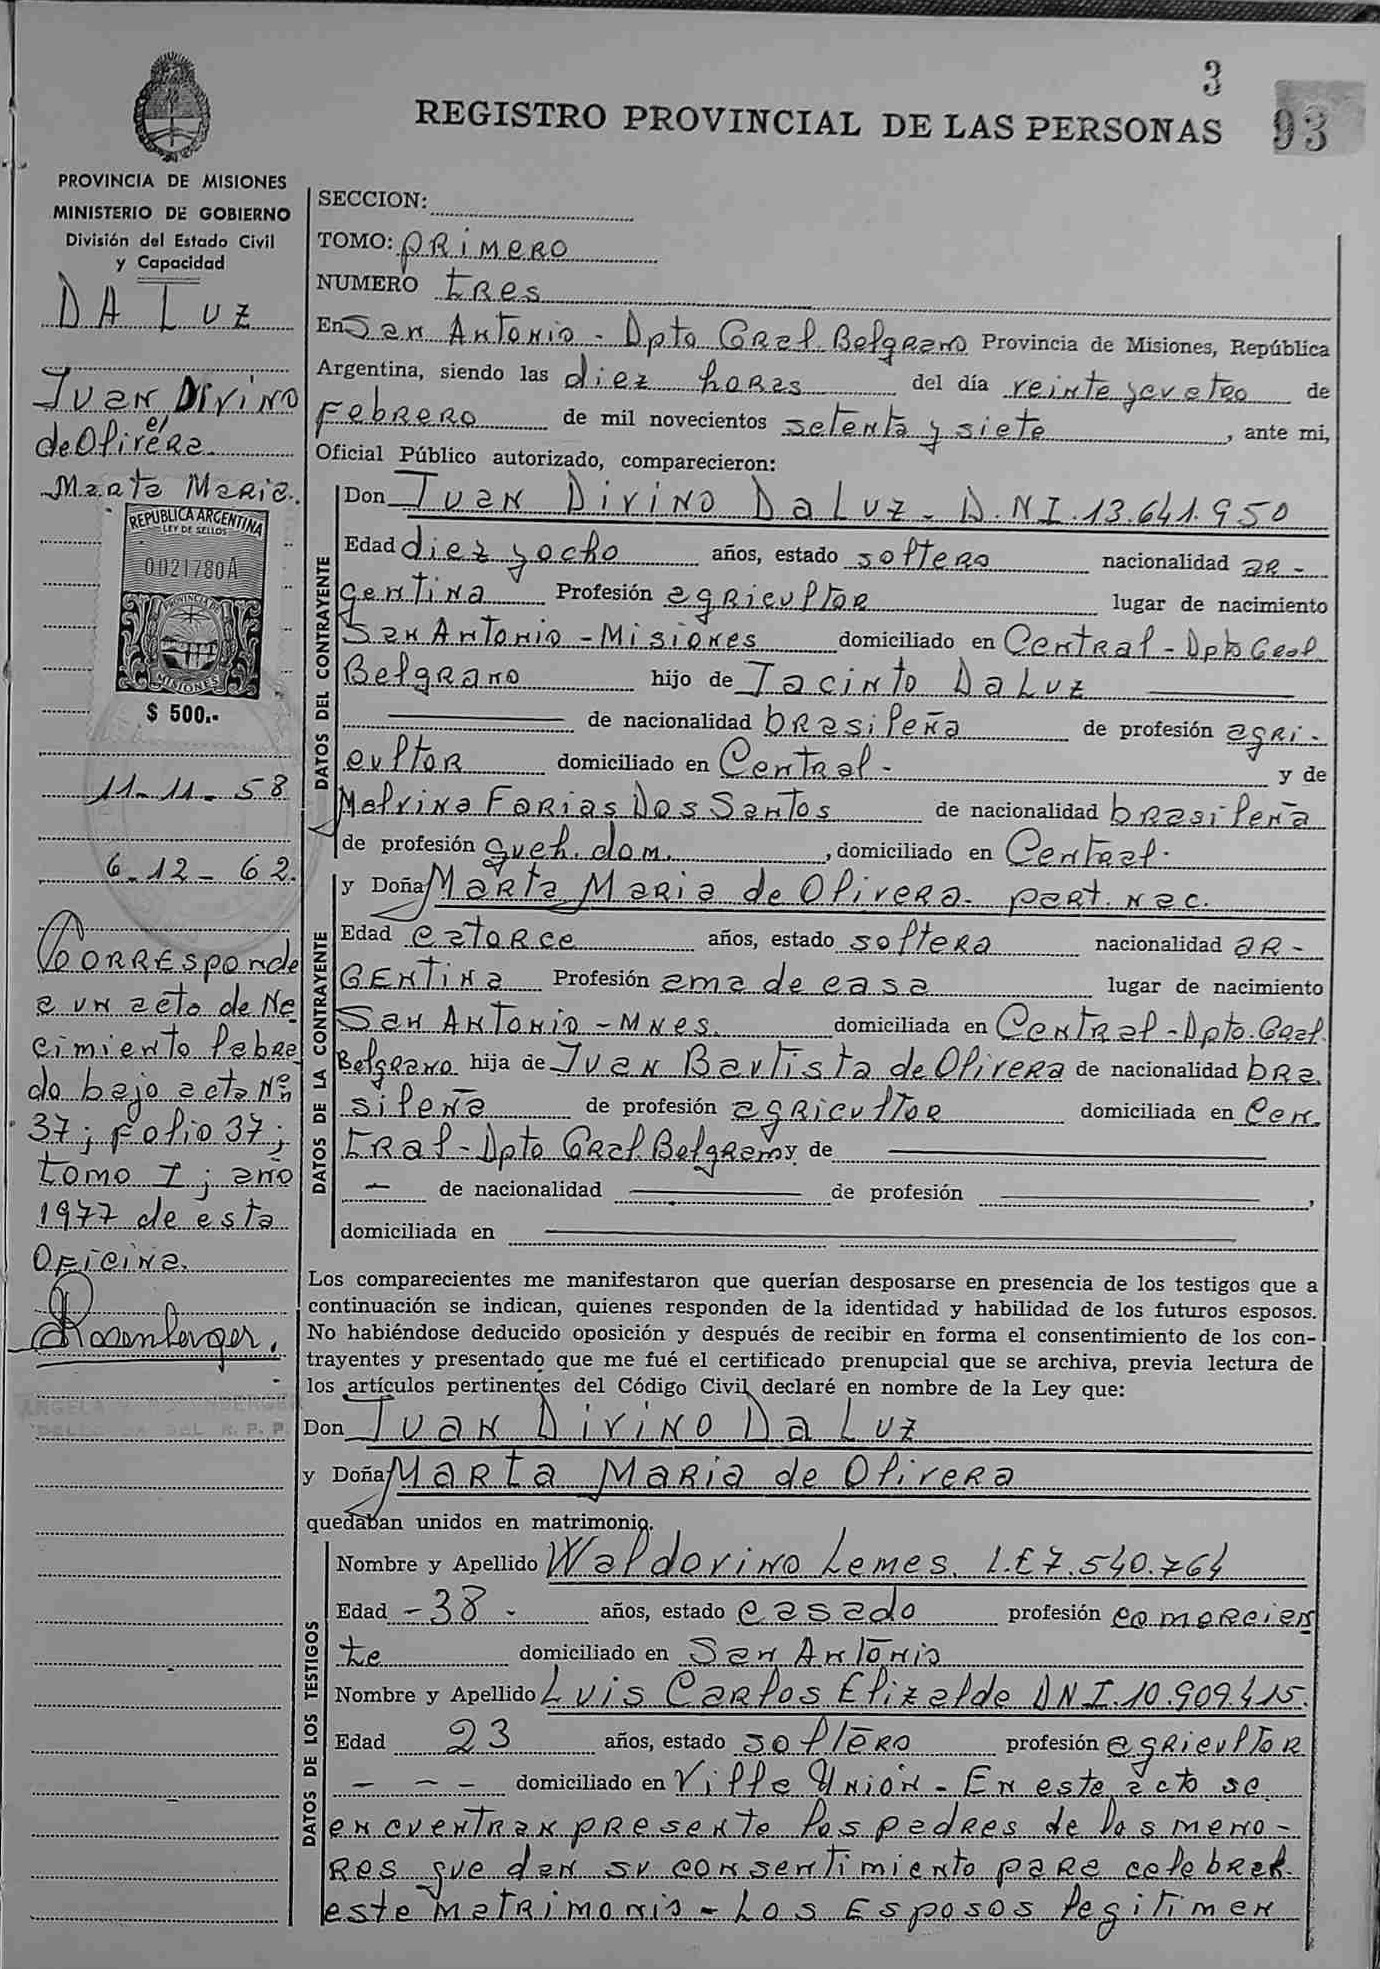 3
REGISTRO PROVINCIAL DE LAS PERSONAS 93
PROVINCIA DE MISIONES
MINISTERIO DE GOBIERNO
División del Estado Civil
y Capacidad
DA LUZ
Juan Divino
de Olivera
Marta Maria.
REPUBLICA ARGENTINA
LEY DE SELLOS
0021780A
PROVINCIA DE
MISIONES
$ 500.-
11-11-58
6-12-62.
Corresponde
a un acto de Na
cimiento labra
do bajo acta Nº
37; folio 37;
tomo I; año
1977 de esta
Oficina.
Rosenberger.
SECCION:
TOMO: primero
NUMERO tres
En San Antonio - Dpto Gral. Belgrano Provincia de Misiones, República
Argentina, siendo las diez horas del día veinte y cuatro de
Febrero de mil novecientos setenta y siete, ante mi,
Oficial Público autorizado, comparecieron:
DATOS DEL CONTRAYENTE
Don Juan Divino Da Luz - D.N.I. 13.641.950
Edad diez y ocho años, estado soltero nacionalidad ar-
gentina Profesión agricultor lugar de nacimiento
San Antonio - Misiones domiciliado en Central - Dpto Gral
Belgrano hijo de Jacinto Da Luz
de nacionalidad brasileña de profesión agri-
cultor domiciliado en Central - y de
Malvina Farias Dos Santos de nacionalidad brasileña
de profesión queh. dom., domiciliado en Central.
DATOS DE LA CONTRAYENTE
y Doña Marta Maria de Olivera. part. nac.
Edad catorce años, estado soltera nacionalidad ar-
gentina Profesión ama de casa lugar de nacimiento
San Antonio - Mnes. domiciliada en Central - Dpto. Gral.
Belgrano hija de Juan Bautista de Olivera de nacionalidad bra.
sileña de profesión agricultor domiciliada en Cen.
tral - Dpto Gral. Belgrano y de
de nacionalidad de profesión ,
domiciliada en
Los comparecientes me manifestaron que querían desposarse en presencia de los testigos que a
continuación se indican, quienes responden de la identidad y habilidad de los futuros esposos.
No habiéndose deducido oposición y después de recibir en forma el consentimiento de los con-
trayentes y presentado que me fué el certificado prenupcial que se archiva, previa lectura de
los artículos pertinentes del Código Civil, declaré en nombre de la Ley que:
Don Juan Divino Da Luz
y Doña Marta Maria de Olivera
quedaban unidos en matrimonio.
DATOS DE LOS TESTIGOS
Nombre y Apellido Waldovino Lemes. L.E 7.540.764
Edad -38- años, estado casado profesión comercian
te domiciliado en San Antonio
Nombre y Apellido Luis Carlos Elizalde DNI. 10.909.415.
Edad 23 años, estado soltero profesión agricultor
- - - domiciliado en Villa Unión - En este acto se
encuentran presente los padres de los meno-
res que dan su consentimiento para celebrar.
este matrimonio - Los Esposos legitiman